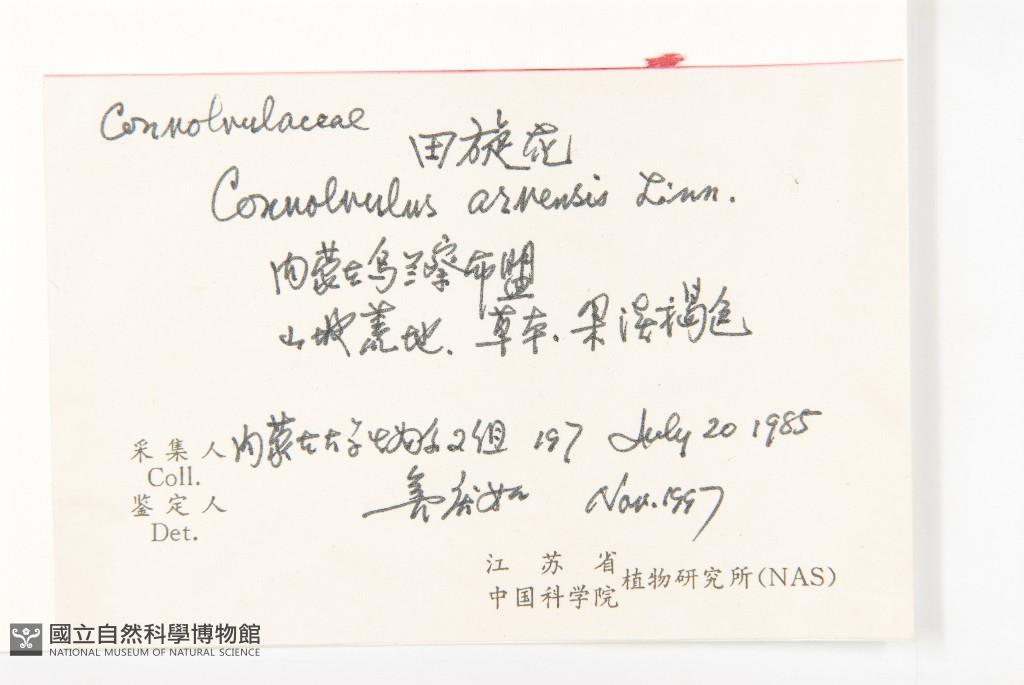 Convolvulaceae
田旋花
Convolvulus arvensis Linn.
内蒙古乌兰察布盟
山坡荒地、草本、果淡褐色
采集人 内蒙古大学生物系 组 197 July 20 1985
Coll.
鉴定人 Nov. 1997
Det.
江苏省
中国科学院 植物研究所(NAS)
國立自然科學博物館
NATIONAL MUSEUM OF NATURAL SCIENCE